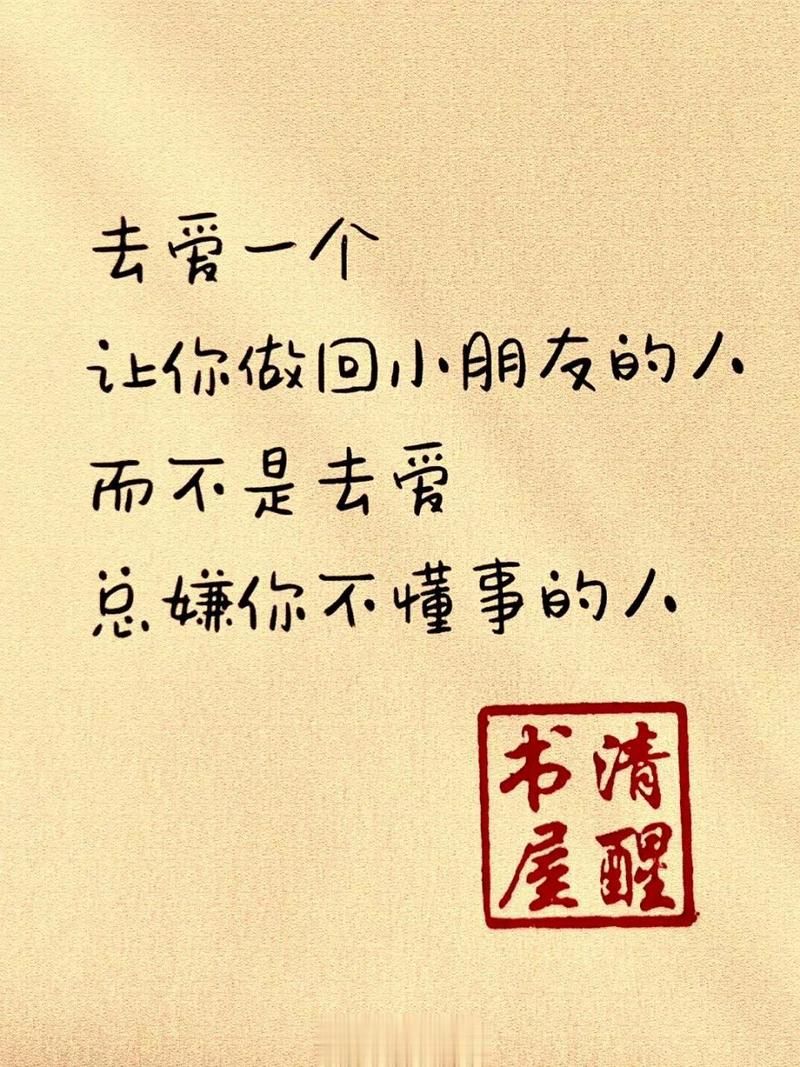 去爱一个
让你做回小朋友的人
而不是去爱
总嫌你不懂事的人
清醒
书屋